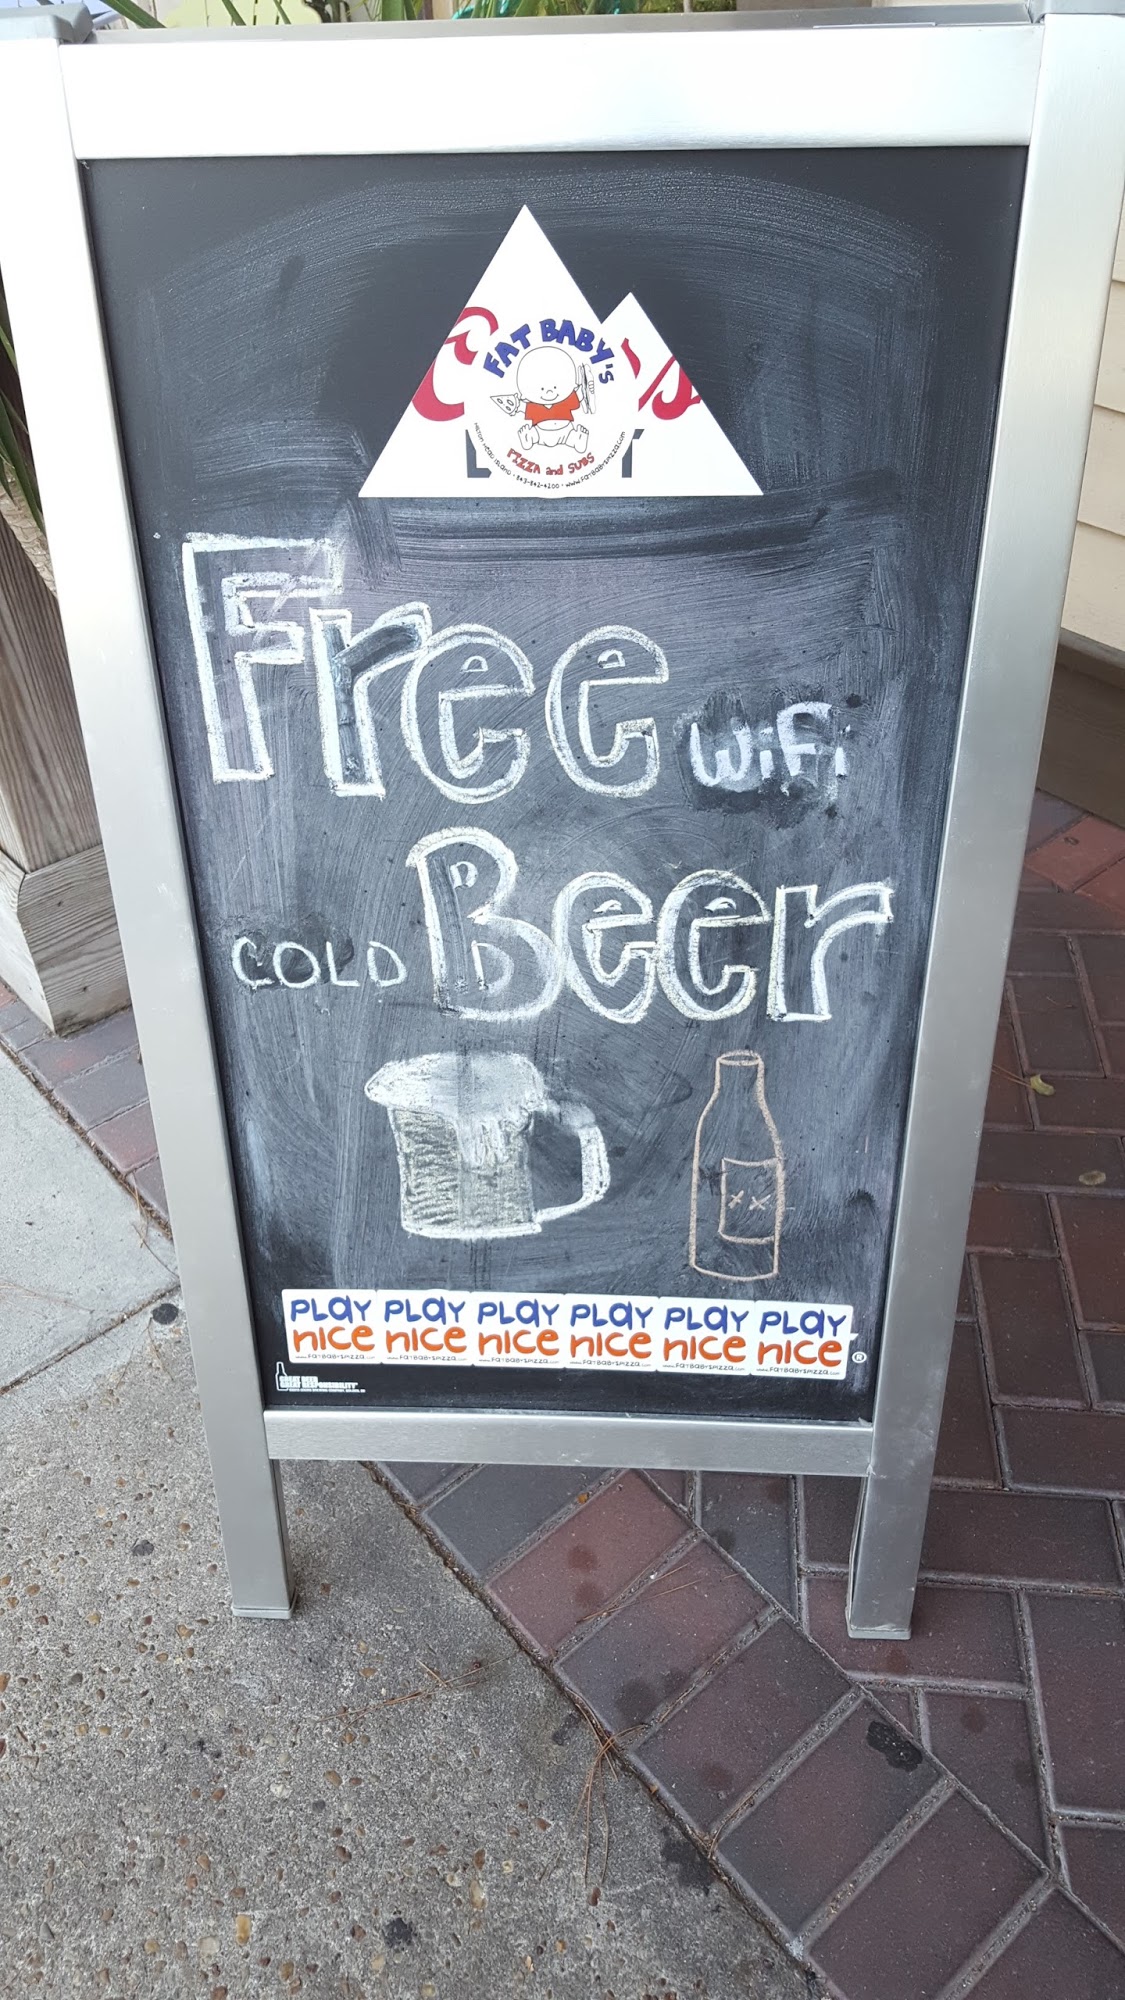 FAT BABY's
PIZZA and SUBS
HILTON HEAD ISLAND • 843-842-4200 • www.FATBABYSPIZZA.com
Free WiFi
COLD Beer
xx
PLAY PLAY PLAY PLAY PLAY PLAY
nice nice nice nice nice nice
www.FATBABYSPIZZA.com www.FATBABYSPIZZA.com www.FATBABYSPIZZA.com www.FATBABYSPIZZA.com www.FATBABYSPIZZA.com www.FATBABYSPIZZA.com
®
GREAT BEER
GREAT RESPONSIBILITY®